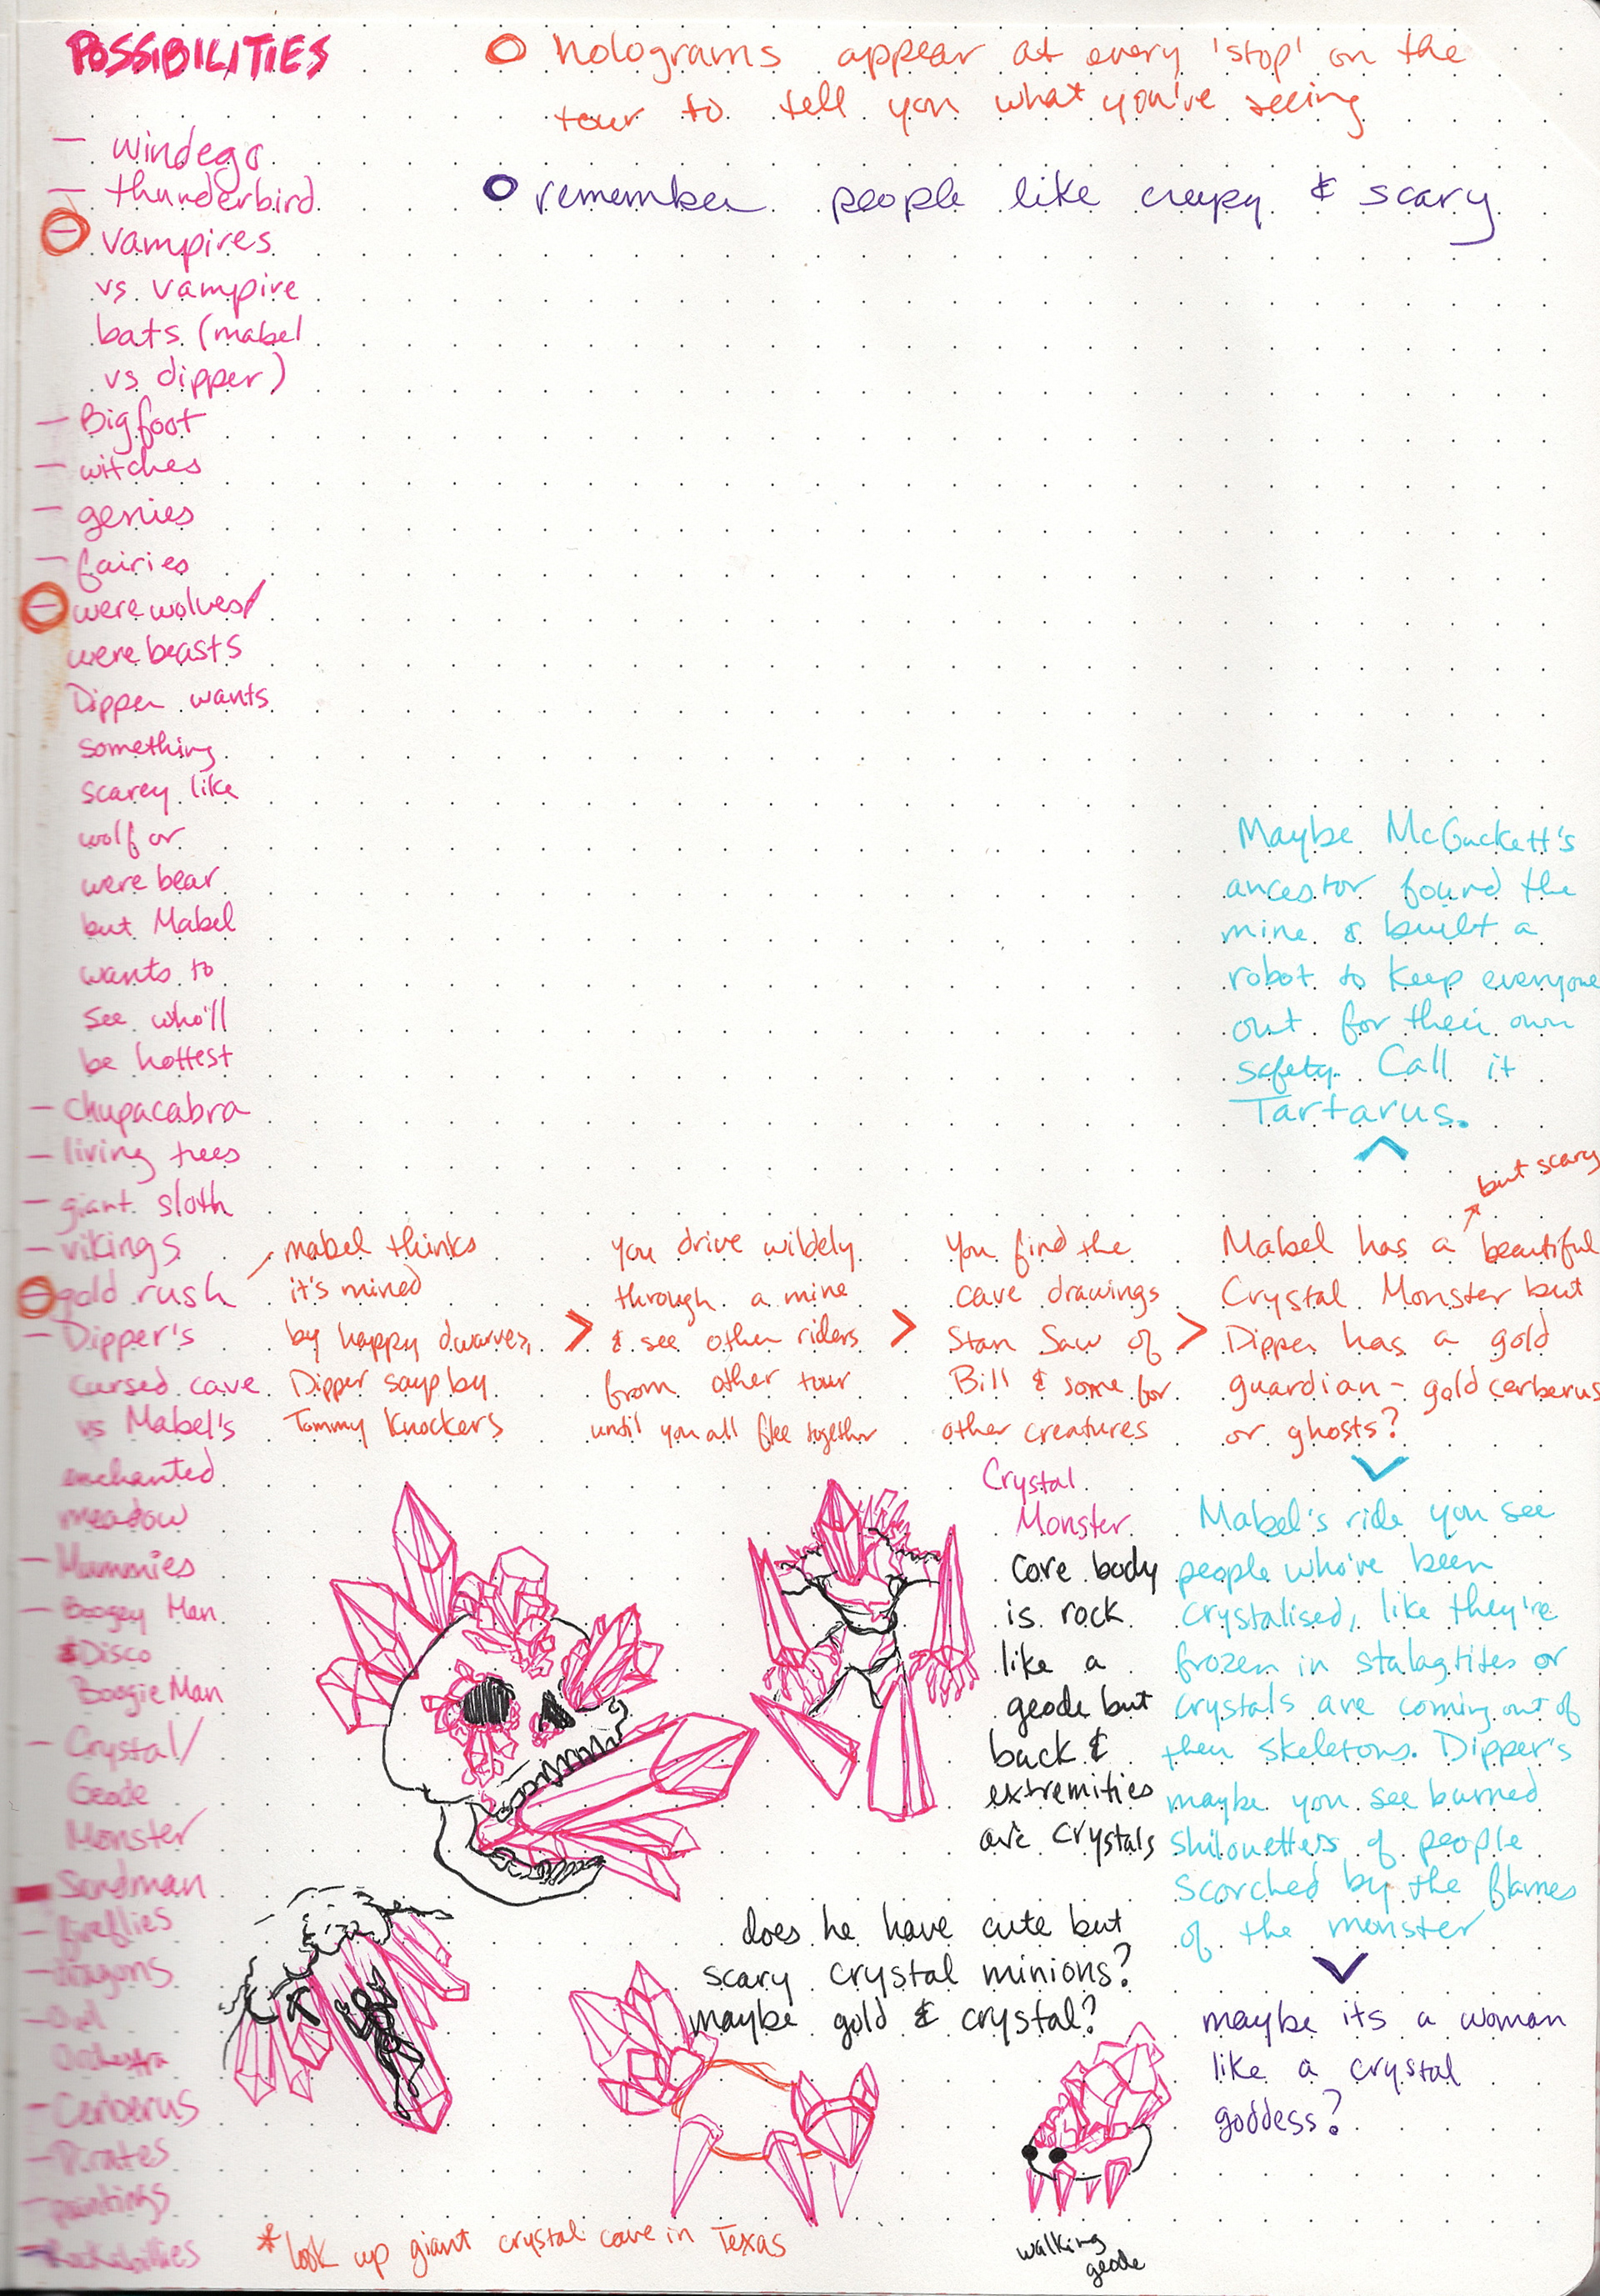 POSSIBILITIES
— windego
— thunderbird
— vampires
vs vampire
bats (mabel
vs dipper)
— Bigfoot
— witches
— genies
— fairies
— werewolves/
were beasts
Dipper wants
something
scarey like
wolf or
were bear
but Mabel
wants to
see who'll
be hottest
— chupacabra
— living trees
— giant sloth
— vikings
— gold rush
— Dipper's
cursed cave
vs Mabel's
enchanted
meadow
— Mummies
— Boogey Man
& Disco
Boogie Man
— Crystal/
Geode
Monster
Sandman
— fireflies
— dragons
— Owl
Orchestra
— Cerberus
— Pirates
— paintings
— Rockabillies
holograms appear at every 'stop' on the
tour to tell you what you've seeing
remember people like creepy & scary
mabel thinks
it's mined
by happy dwarves,
Dipper says by
Tommy Knockers
>
you drive wildely
through a mine
& see other riders
from other tour
until you all flee together
>
You find the
cave drawings
Stan Saw of
Bill & some for
other creatures
>
but scary
Mabel has a beautiful
Crystal Monster but
Dipper has a gold
guardian - gold cerberus
or ghosts?
Maybe McGuckett's
ancestor found the
mine & built a
robot to keep everyone
out for their own
safety. Call it
Tartarus.
Mabel's ride you see
people who've been
crystalised, like they're
frozen in stalagtites or
crystals are coming out of
their skeletons. Dipper's
maybe you see burned
shilouettes of people
scorched by the flames
of the monster
maybe its a woman
like a crystal
goddess?
Crystal
Monster
core body
is rock
like a
geode but
back &
extremities
are crystals
does he have cute but
scary crystal minions?
maybe gold & crystal?
walking
geode
* look up giant crystal cave in Texas